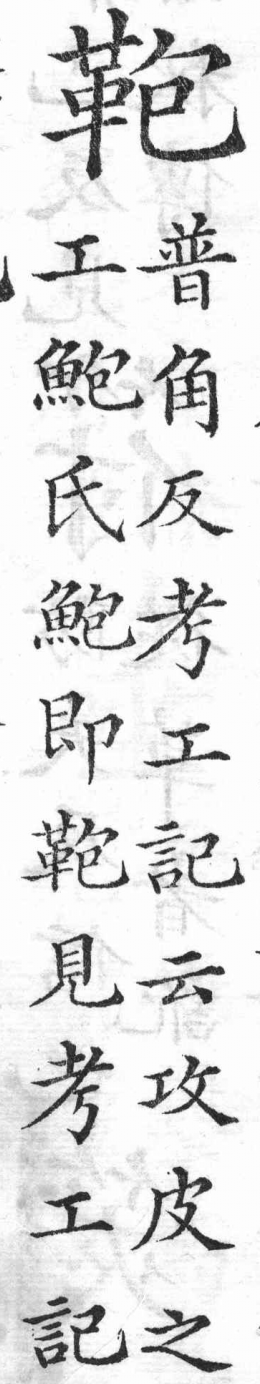 鞄
普角反考工記云攻皮之
工鮑氏鮑即鞄見考工記